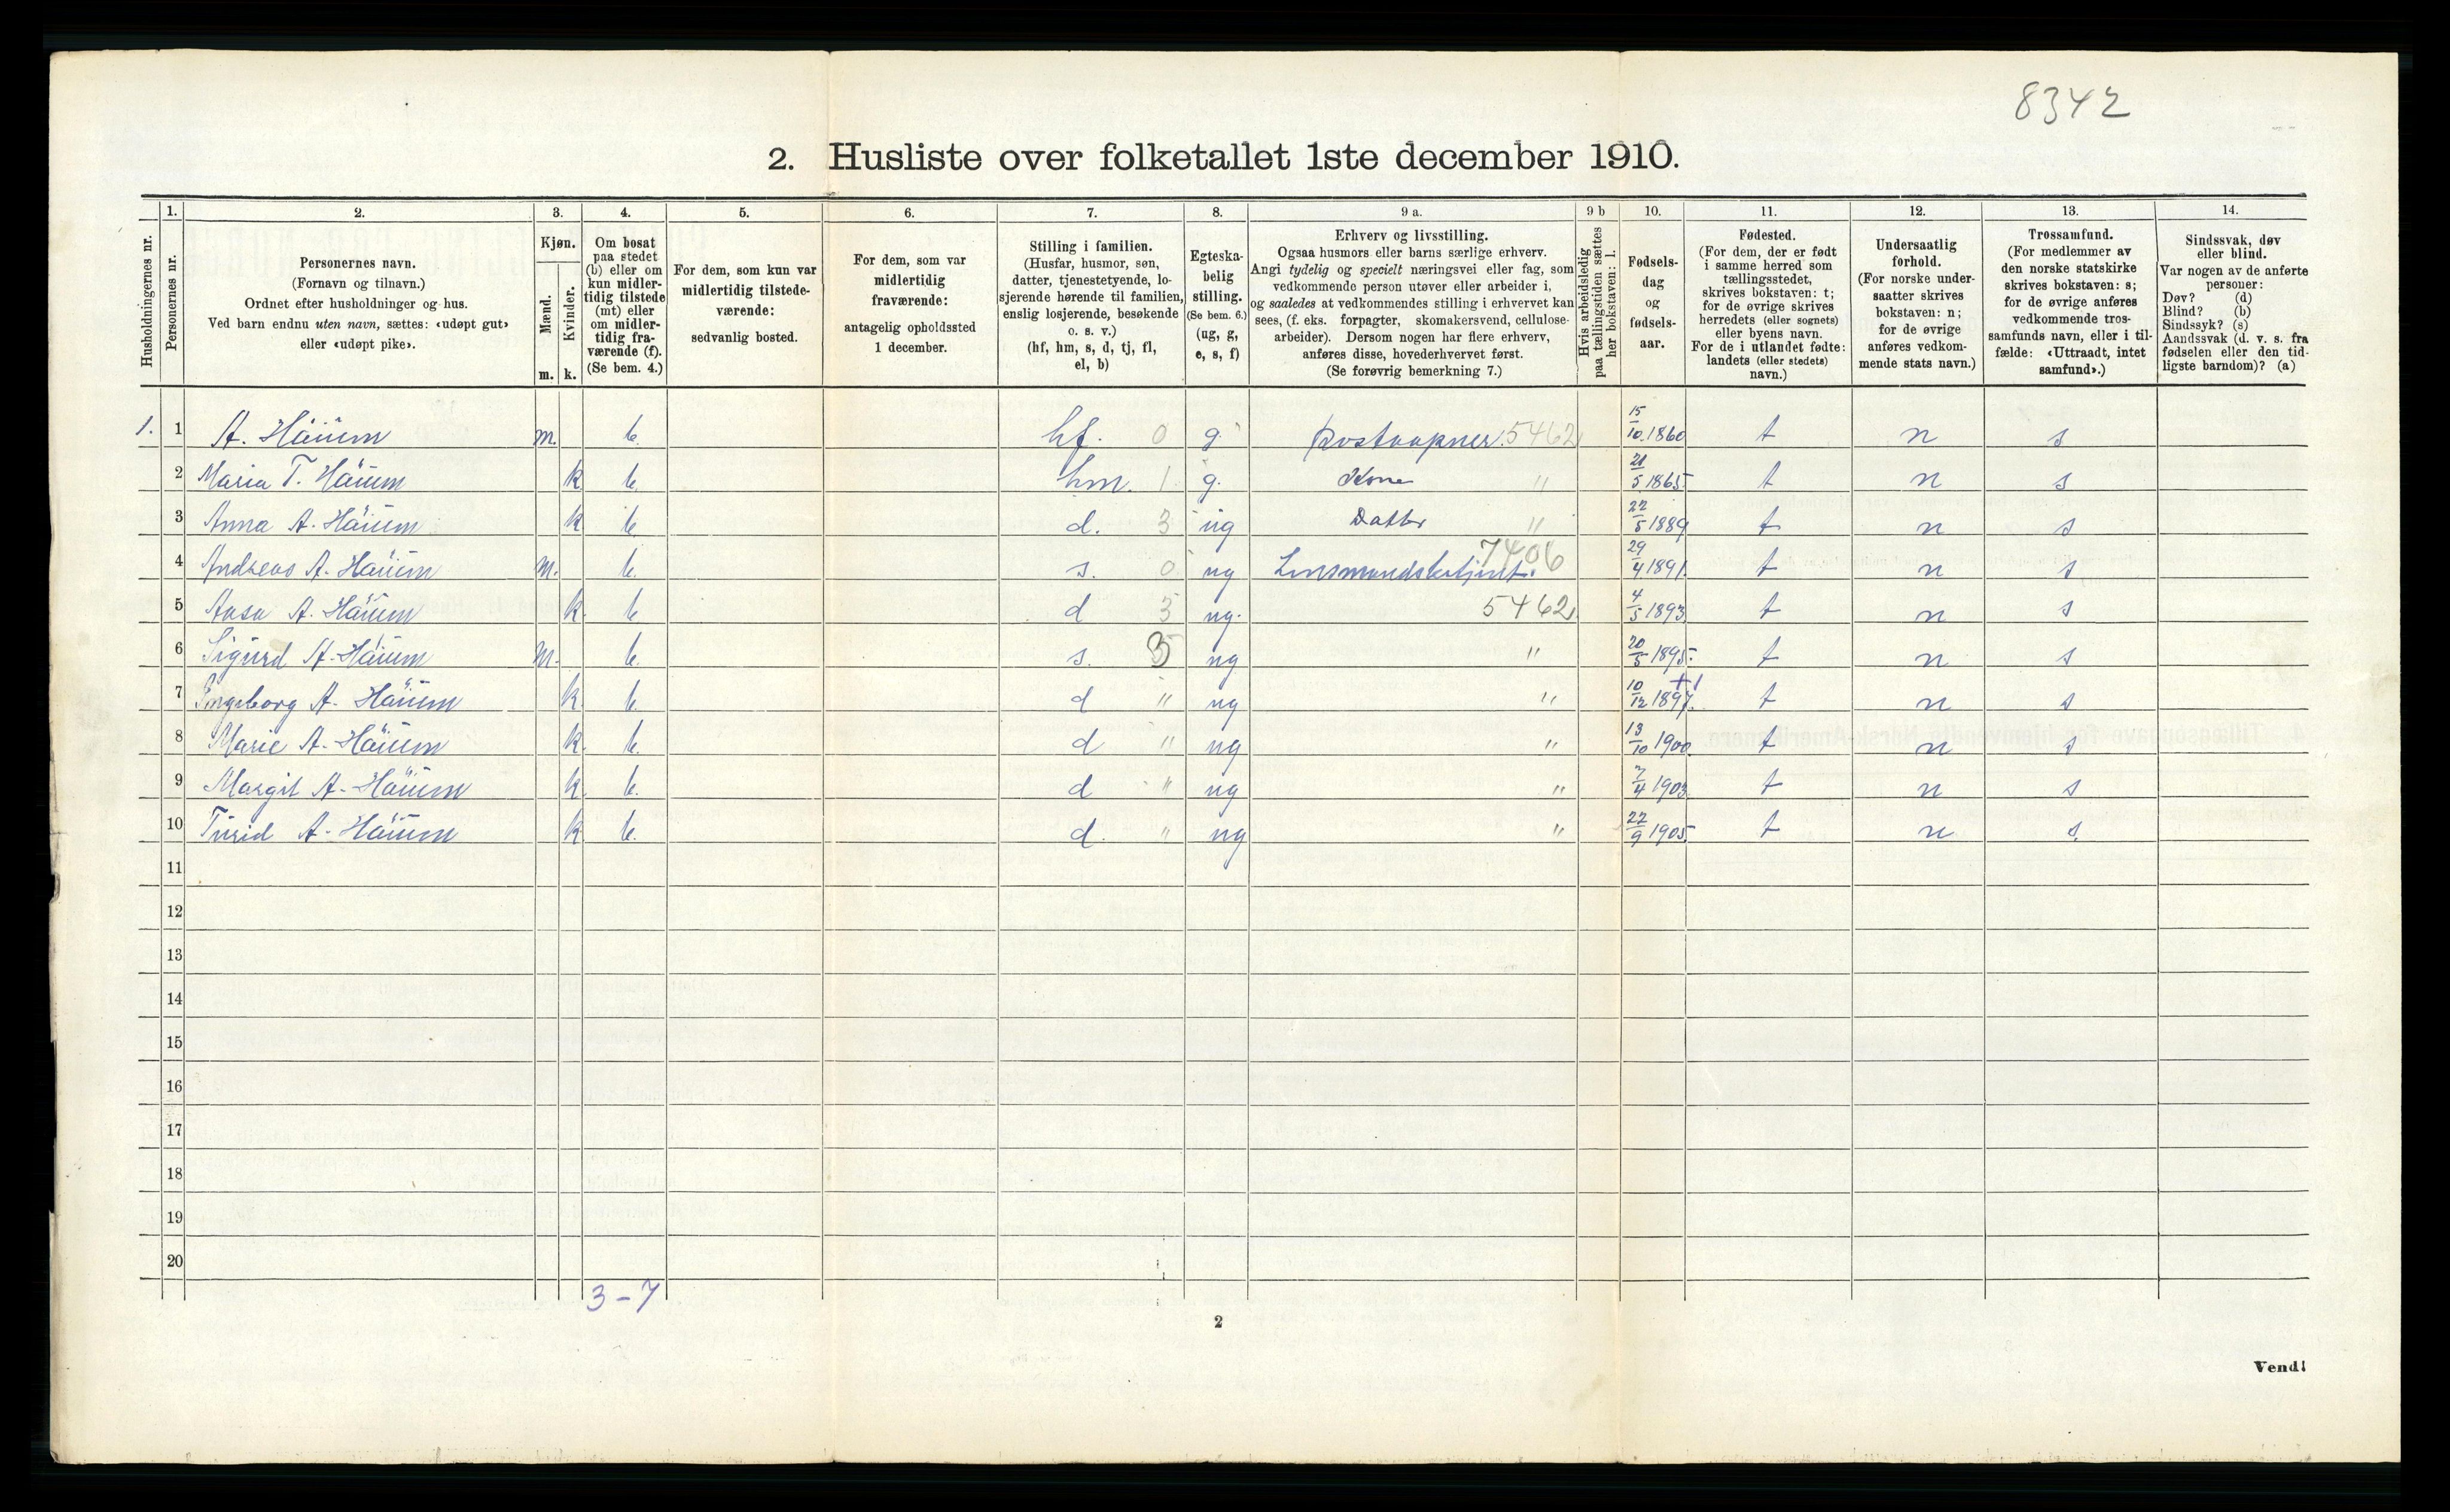 8342
2. Husliste over folketallet 1ste december 1910.
Husholdningernes nr.
1.
Personernes nr.
2.
Personernes navn.
(Fornavn og tilnavn.)
Ordnet efter husholdninger og hus.
Ved barn endnu uten navn, sættes: «udøpt gut»
eller «udøpt pike».
3.
Kjøn.
Mænd.
Kvinder.
m. k.
4.
Om bosat
paa stedet
(b) eller om
kun midler-
tidig tilstede
(mt) eller
om midler-
tidig fra-
værende (f).
(Se bem. 4.)
5.
For dem, som kun var
midlertidig tilstede-
værende:
sedvanlig bosted.
6.
For dem, som var
midlertidig
fraværende:
antagelig opholdssted
1 december.
7.
Stilling i familien.
(Husfar, husmor, søn,
datter, tjenestetyende, lo-
sjerende hørende til familien,
enslig losjerende, besøkende
o. s. v.)
(hf, hm, s, d, tj, fl,
el, b)
8.
Egteska-
belig
stilling.
(Se bem. 6.)
(ug, g,
e, s, f)
9 a.
Erhverv og livsstilling.
Ogsaa husmors eller barns særlige erhverv.
Angi tydelig og specielt næringsvei eller fag, som
vedkommende person utøver eller arbeider i,
og saaledes at vedkommendes stilling i erhvervet kan
sees, (f. eks. forpagter, skomakersvend, cellulose-
arbeider). Dersom nogen har flere erhverv,
anføres disse, hovederhvervet først.
(Se forøvrig bemerkning 7.)
9 b
Hvis arbeidsledig
paa tællingstiden sættes
her bokstaven: l.
10.
Fødsels-
dag
og
fødsels-
aar.
11.
Fødested.
(For dem, der er født
i samme herred som
tællingsstedet,
skrives bokstaven: t;
for de øvrige skrives
herredets (eller sognets)
eller byens navn.
For de i utlandet fødte:
landets (eller stedets)
navn.)
12.
Undersaatlig
forhold.
(For norske under-
saatter skrives
bokstaven: n;
for de øvrige
anføres vedkom-
mende stats navn.)
13.
Trossamfund.
(For medlemmer av
den norske statskirke
skrives bokstaven: s;
for de øvrige anføres
vedkommende tros-
samfunds navn, eller i til-
fælde: «Uttraadt, intet
samfund».)
14.
Sindssvak, døv
eller blind.
Var nogen av de anførte
personer:
Døv? (d)
Blind? (b)
Sindssyk? (s)
Aandssvak (d. v. s. fra
fødselen eller den tid-
ligste barndom)? (a)
1. 1 A. Häüem m. b. hf. 0 g. Postaapner. 5462 15/10 1860 t n s
2 Maria T. Häüem k b. hm. 1 g. Kone " 21/5 1865. t n s
3 Anna A. Häüem k b d. 3 ug Datter " 22/5 1889 t n s
4 Andreas A. Häüem m. b. s. 0 ug Lensmandsbetjent. 7406 29/4 1891. t n s
5 Aasa A. Häüem k. b d 3 ug. 5462 4/5 1893 t n s
6 Sigurd A. Häüem m. b. s. 3 ug " 20/5 1895. t n s
7 Ingeborg A. Häüem k. b. d " ug " 10/12 1897. t n s
8 Marie A. Häüem k. b. d " ug " 13/10 1900. t n s
9 Margit A. Häüem k. b. d " ug " 7/4 1903. t n s
10 Turid A. Häüem k b. d. " ug " 22/9 1905. t n s.
11
12
13
14
15
16
17
18
19
20
3-7
2
Vend!